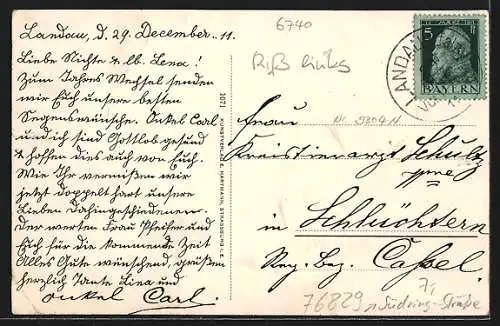 Landau, d. 29. December. 11.
Liebe Nichte & lb. Lena!
Zum Jahres Wechsel senden
wir Euch unsere besten
Segenswünsche. Onkel Carl
und ich sind Gottlob gesund
& hoffen dies auch von Euch.
Wie Ihr vermissen wir
jetzt doppelt hart unsere
Lieben Dahingeschiedenen.
Der werten Frau Pfeifer und
Euch für die kommende Zeit
Alles Gute wünschend, grüßen
herzlich Tante Lina und
Onkel Carl.
1071 KUNSTVERLAG E. HARTMANN, STRASSBURG i. E.
6740
Riß links
5 PF
BAYERN
LANDAU
Nr. 5304N
Frau
Kreistierarzt Schultz
in Schlüchtern
Reg. Bez. Cassel.
7,
76829, Südring-Straße